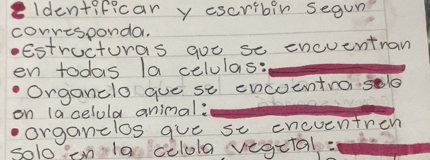 Identificar y escribir segun
corresponda.
•Estructuras que se encuentran
en todas la celulas:
•Organelo que se encuentra solo
en la celula animal:
•organelos que se encuentren
solo en la celula vegetal: